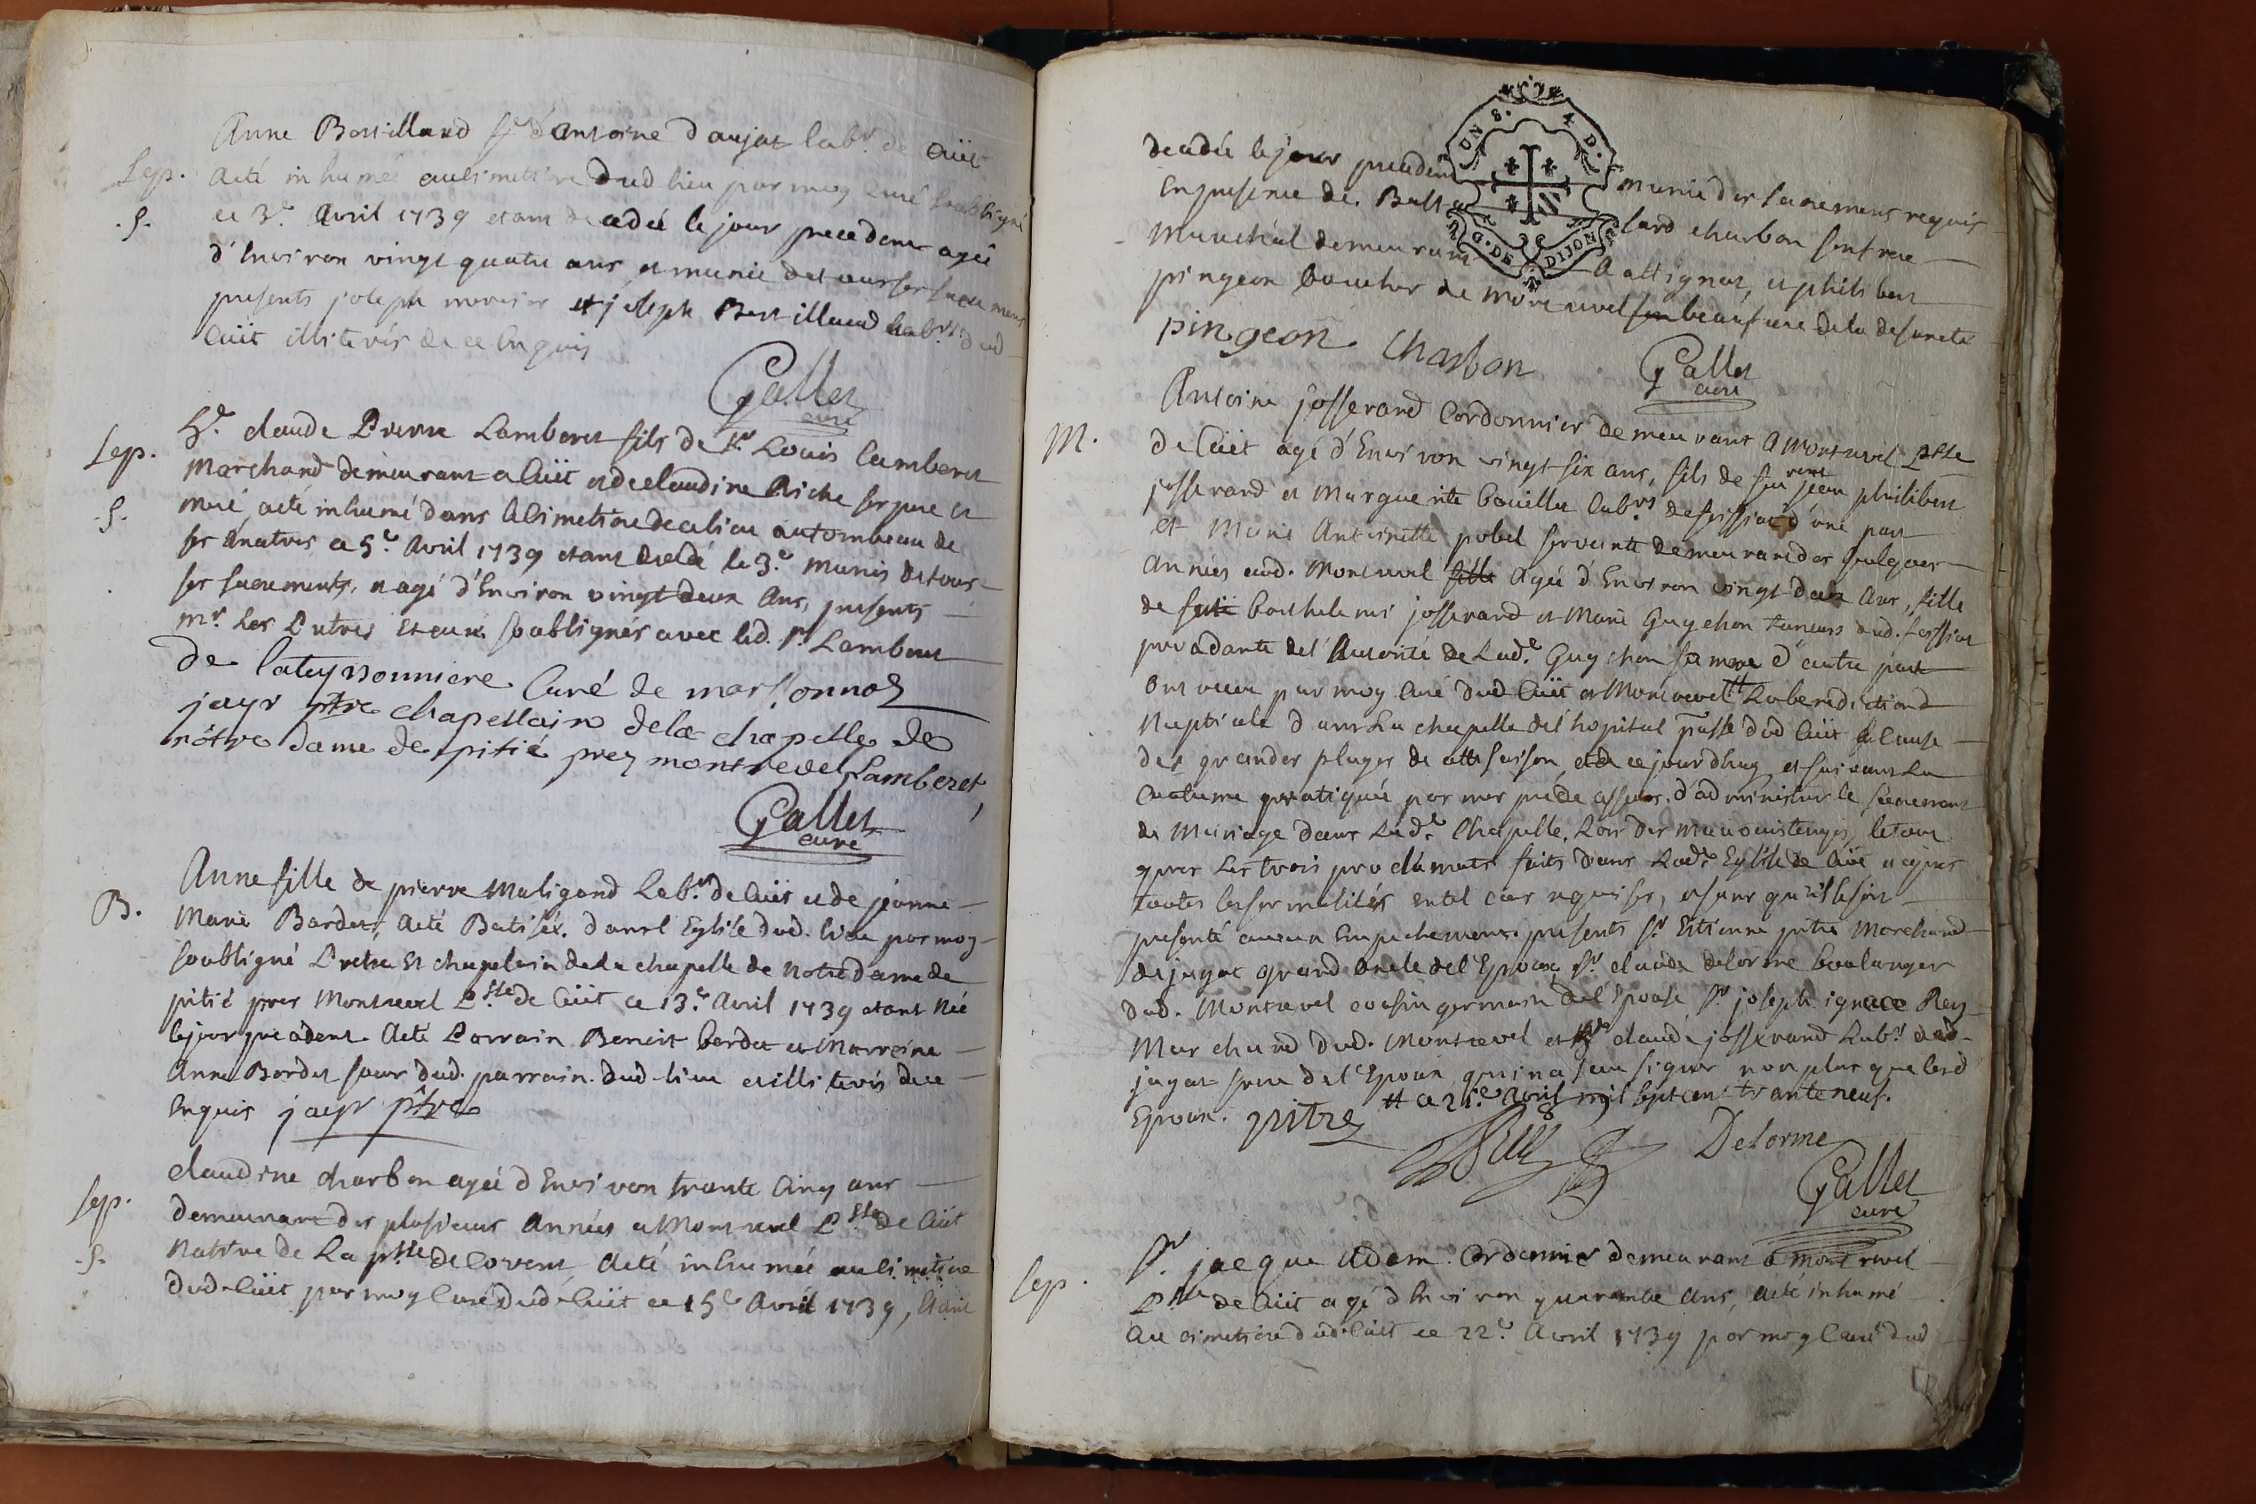 Anne Bottilland fe d'Antoine daujat labr. de Cüit
Sep. a été inhumée au cimetiere dud lieu par moy curé soubsigné
.S. ce 3e. Avril 1739 etant decedée le jour precedent agée
d'Environ vingt quatre ans et munie de tous ses sacremens
presents joseph et joseph Bottilland labrs. dud
Cüit illiterés de ce Enquis
Gallet
curé
Sr. claude Pierre Lamberet fils de Sr. Louis Lamberet
Sep. Marchand demeurant a Cüit et de claudine Riche ses pere et
.S. mere, a été inhumé dans le Cimetiere de ce lieu au tombeau de
ses Ancetres ce 5e. Avril 1739 etant decedé le 3e. munis de tous
ses sacrements, et agé d'Environ vingt deux Ans, presents
mrs. Les Pretres et curé soubsignés avec led. Sr. Lamberet
De lateyssonniere Curé de marsonnas
jayr ptre chapellain de la chapelle de
nôtre dame de pitié prez montrevel Lamberet
Gallet
curé
Anne fille de pierre Maligand Labr. de Cüit et de jeanne
B. Marie Bardet, a été Batisée dans l Eglise dud. lieu par moy
soubsigné Pretre Et chapelain de la chapelle de notre dame de
pitié pres Montrevel Psse de Cüit ce 13e. Avril 1739 etant Née
le jour precedent. a été Parrain Benoit bardet et Marreine
Anne Bardet soeur dud. parrain. dud. lieu et illiterés de ce
Enquis jayr ptre
claudine charbon agée d Environ trante Cinq ans
Sep. demeurant des plusieurs Années a Montrevel Psse de Cüit
.S. Native de La psse de Covent a été inhumée au cimetiere
dud Cüit par moy Curé dud Cüit ce 15e Avril 1739, etant
UN S. 4. D.
G. DE DIJON
decedée le jour precedent munie des sacremens requis
En presence de. charbon son frere
Marechal demeurant a attignat, et philibert
pingeon boucher de Montrevel son beaufrere de la defuncte
pingeon. Charbon Gallet
curé
Antoine josserand Cordonnier demeurant a Montrevel psse
M. de Cüit agé d'Environ vingt six ans, fils de feu jean philibert
josserand et Marguerite bouillet labrs de foissiat d'une part
et Marie Antoinette pobel servante demeurant des quelques
Années aud. Montrevel agée d'Environ vingt deux Ans, fille
de feu barthelemi josserand et Marie Guychon dud. foissiat
procedante de l'Autorité de Lade. Guychon sa mere d'autre part
ont receu par moy Curé dud Cüit et Montrevel Labenediction
Nuptiale dans La chapelle de l'hopital psse dud Cüit a cause
des grandes pluyes de cette saison, et de ce jourdhuy et suivant La
Coutume pratiquée par mes predecesseurs. d'administrer le sacrement
de Mariage dans Lade. Chapelle. Lors des mauvais temps, le tout
apres Les trois proclamats faits dans Lade. Eglise de Cüit et apres
toutes les formalités en tel cas requises, et sans qu'il se soit
presenté aucun Empechement. presents Sr. Estienne pitre Marchand
de jayat grand Oncle de l'Epoux, Sr. claude delorme boulanger
dud. Montrevel cousin germain de l'Epouse Sr. joseph ignace Rey
Marchand dud. Montrevel et claude josserand Labr. dud.
jayat frere de l'Epoux qui n a sceu signer non plus que lesd
Epoux. pitre ce 21e. Avril mil sept cent trante neuf.
Delorme
Gallet
curé
Sr. jacque Adam. Cordonnier demeurant a Montrevel
Sep. Psse de Cüit agé d Environ quarante Ans, a été inhumé
au cimetiere dud. Cüit ce 22e. Avril 1739 par moy Curé dud